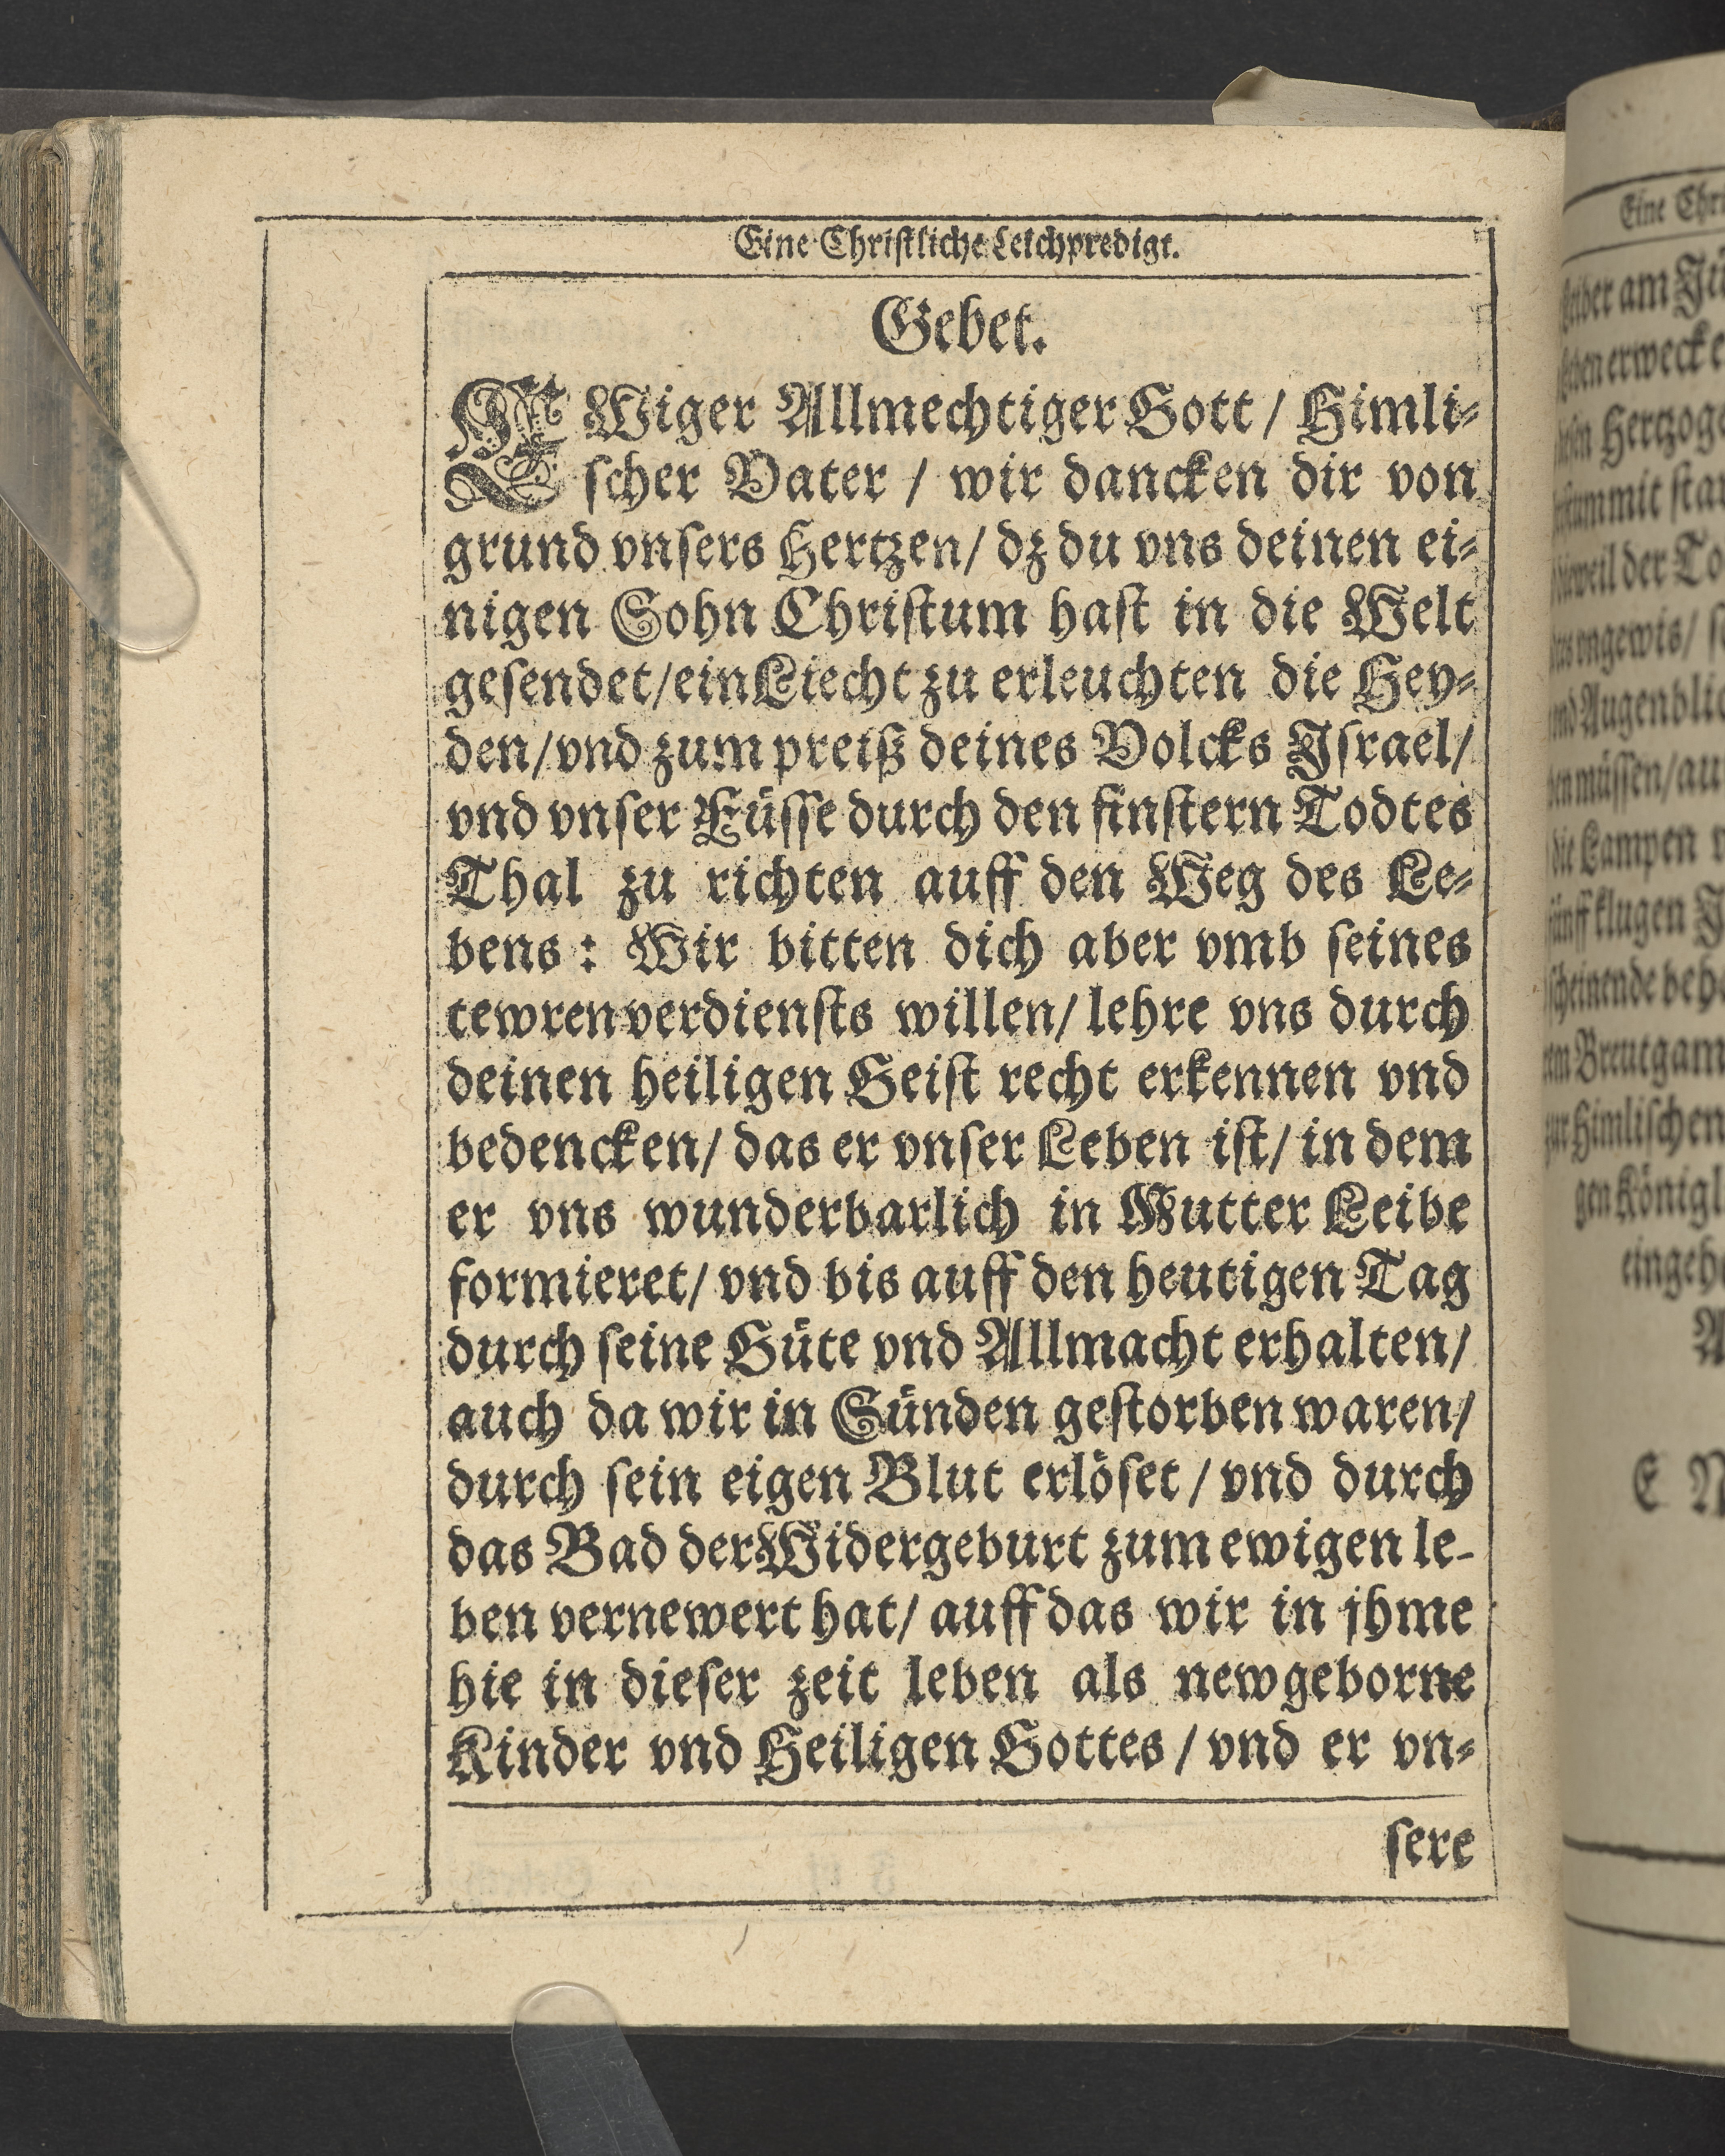 Eine Christliche Leichpredigt.
Gebet.
EWiger Allmechtiger Gott / Himli⸗
scher Vater / wir dancken dir von
grund vnsers Hertzen / dz du vns deinen ei⸗
nigen Sohn Christum hast in die Welt
gesendet / ein Liecht zu erleuchten die Hey⸗
den / vnd zum preiß deines Volcks Israel /
vnd vnser Füsse durch den finstern Todtes
Thal zu richten auff den Weg des Le⸗
bens : Wir bitten dich aber vmb seines
tewren verdiensts willen / lehre vns durch
deinen heiligen Geist recht erkennen vnd
bedencken / das er vnser Leben ist / in dem
er vns wunderbarlich in Mutter Leibe
formieret / vnd bis auff den heutigen Tag
durch seine Güte vnd Allmacht erhalten /
auch da wir in Sünden gestorben waren /
durch sein eigen Blut erlöset / vnd durch
das Bad der Widergeburt zum ewigen le-
ben vernewert hat / auff das wir in jhme
hie in dieser zeit leben als newgeborne
Kinder vnd Heiligen Gottes / vnd er vn⸗
sere
Eine Chri
am Jü
erwecke
Hertzoge
mit star
der To
vngewis / s
Augenblic
müssen / au
die Lampen
klugen J
Breutgam
Himlischen
gen Königl
eingeh
A
E N